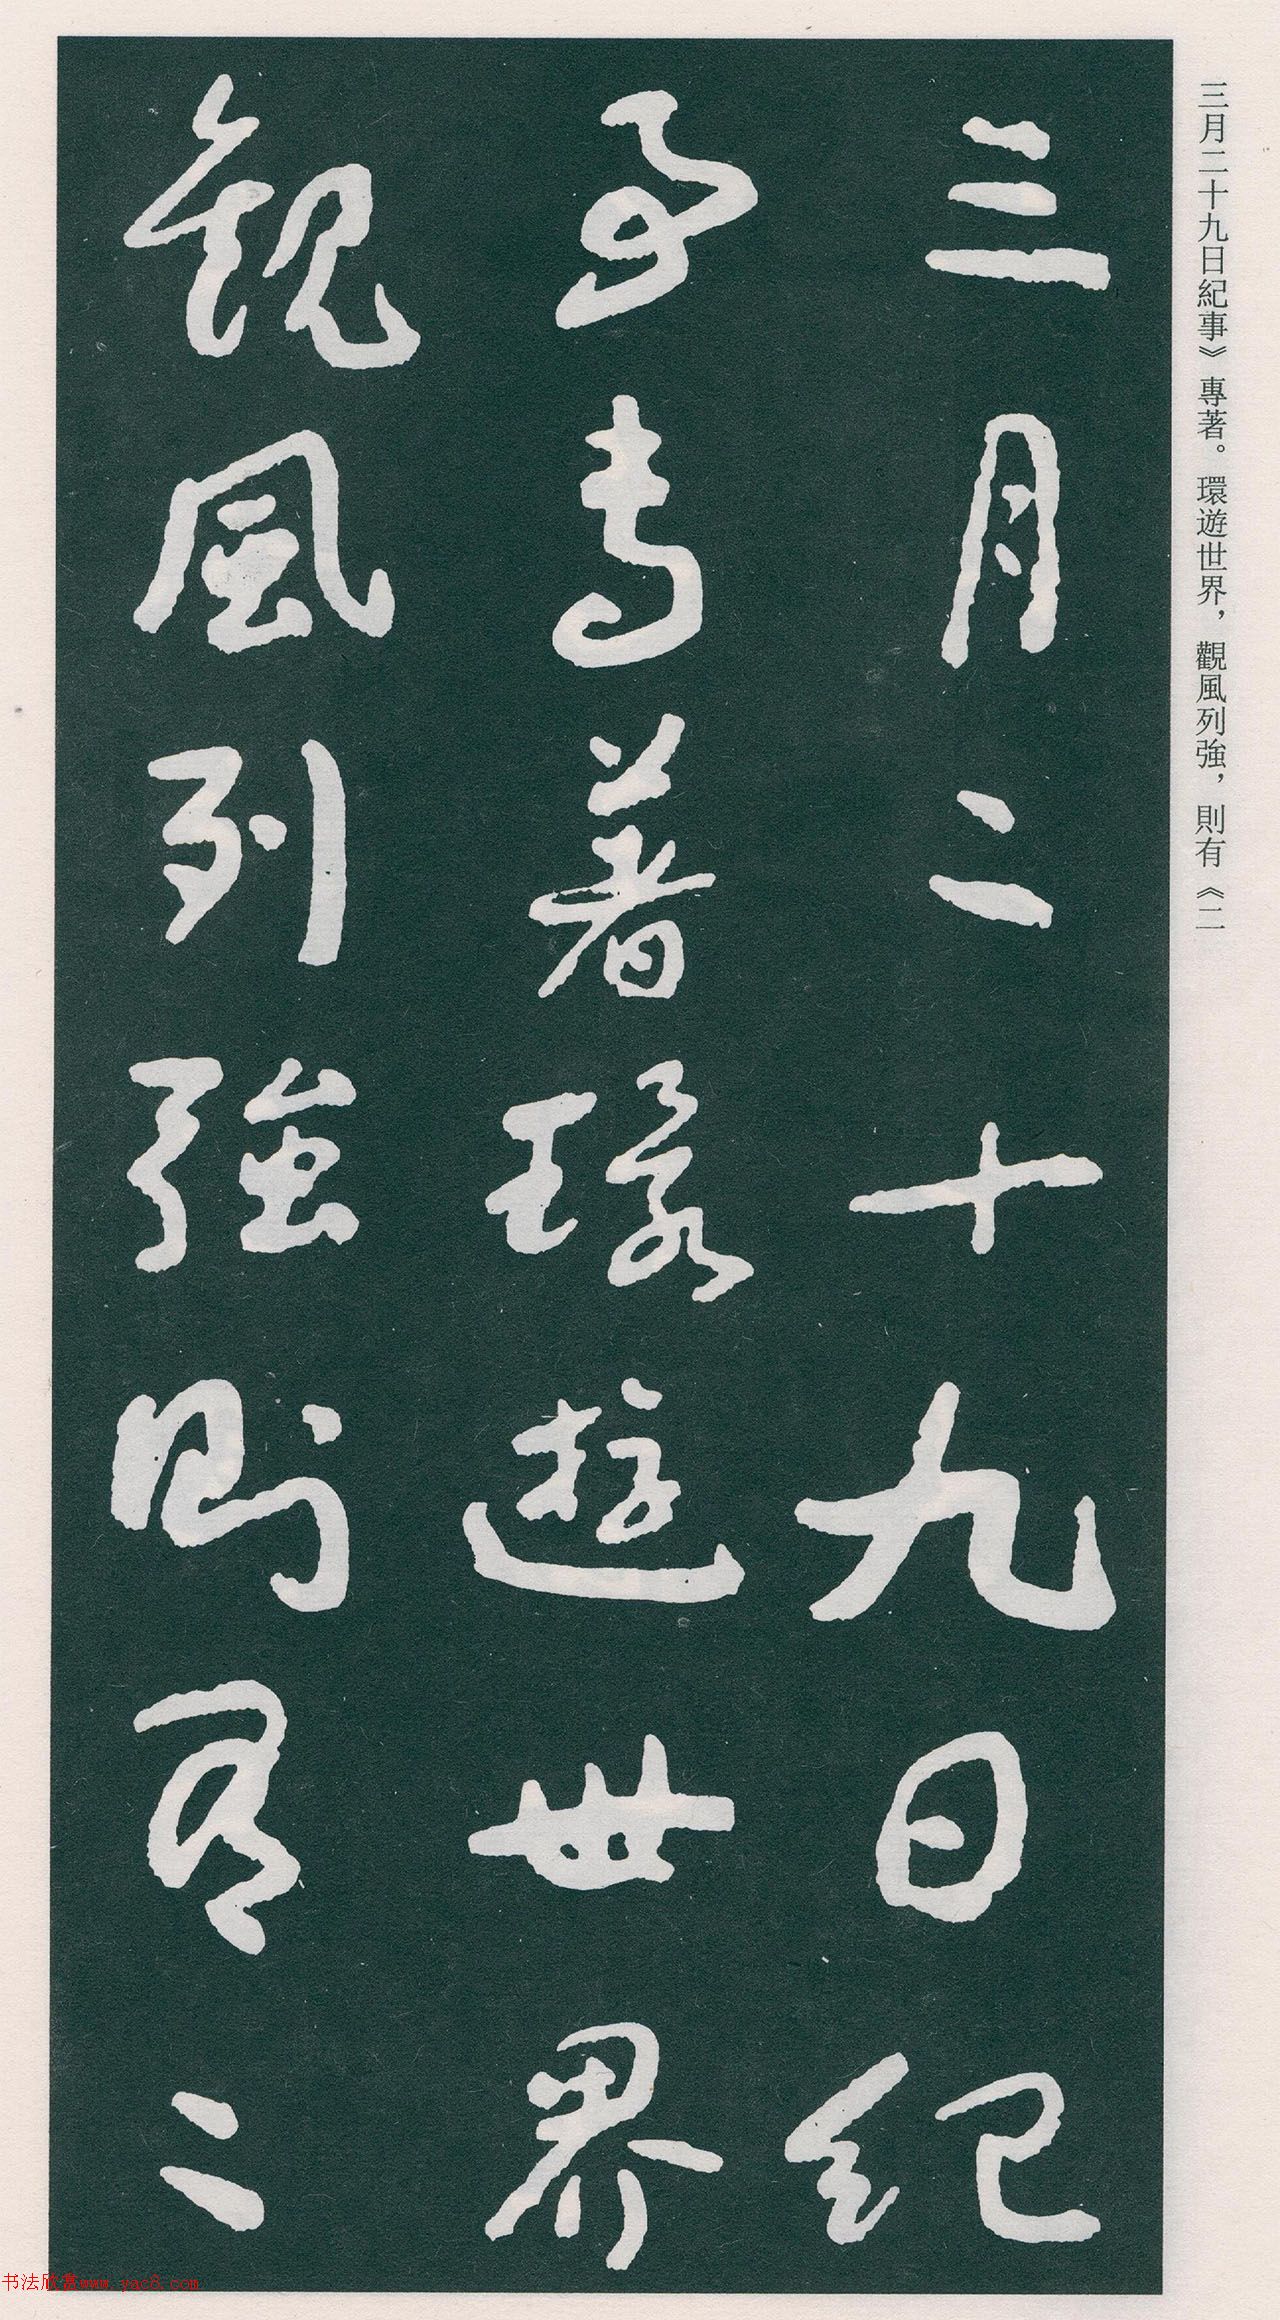 三月二十九日紀事》專著。環遊世界，觀風列強，則有《二
三月二十九日紀
事專著環遊世界
觀風列強則有二
书法欣赏www.yac8.com